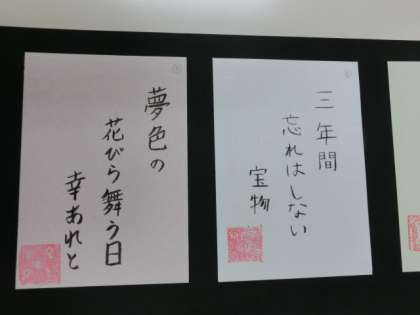 夢色の
花びら舞う日
幸あれと
三年間
忘れはしない
宝物